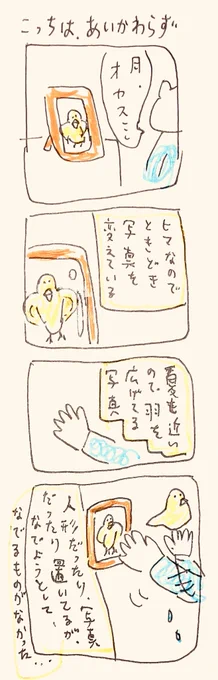 こっちは、あいかわらず
月、
オカスミ
ヒマなので
ときどき
写真を
変えている
夏も近い
ので羽を
広げてる
写真
人形だったり、写真
だったり置いてるが、
なでようとして、
なでるものがなかった…